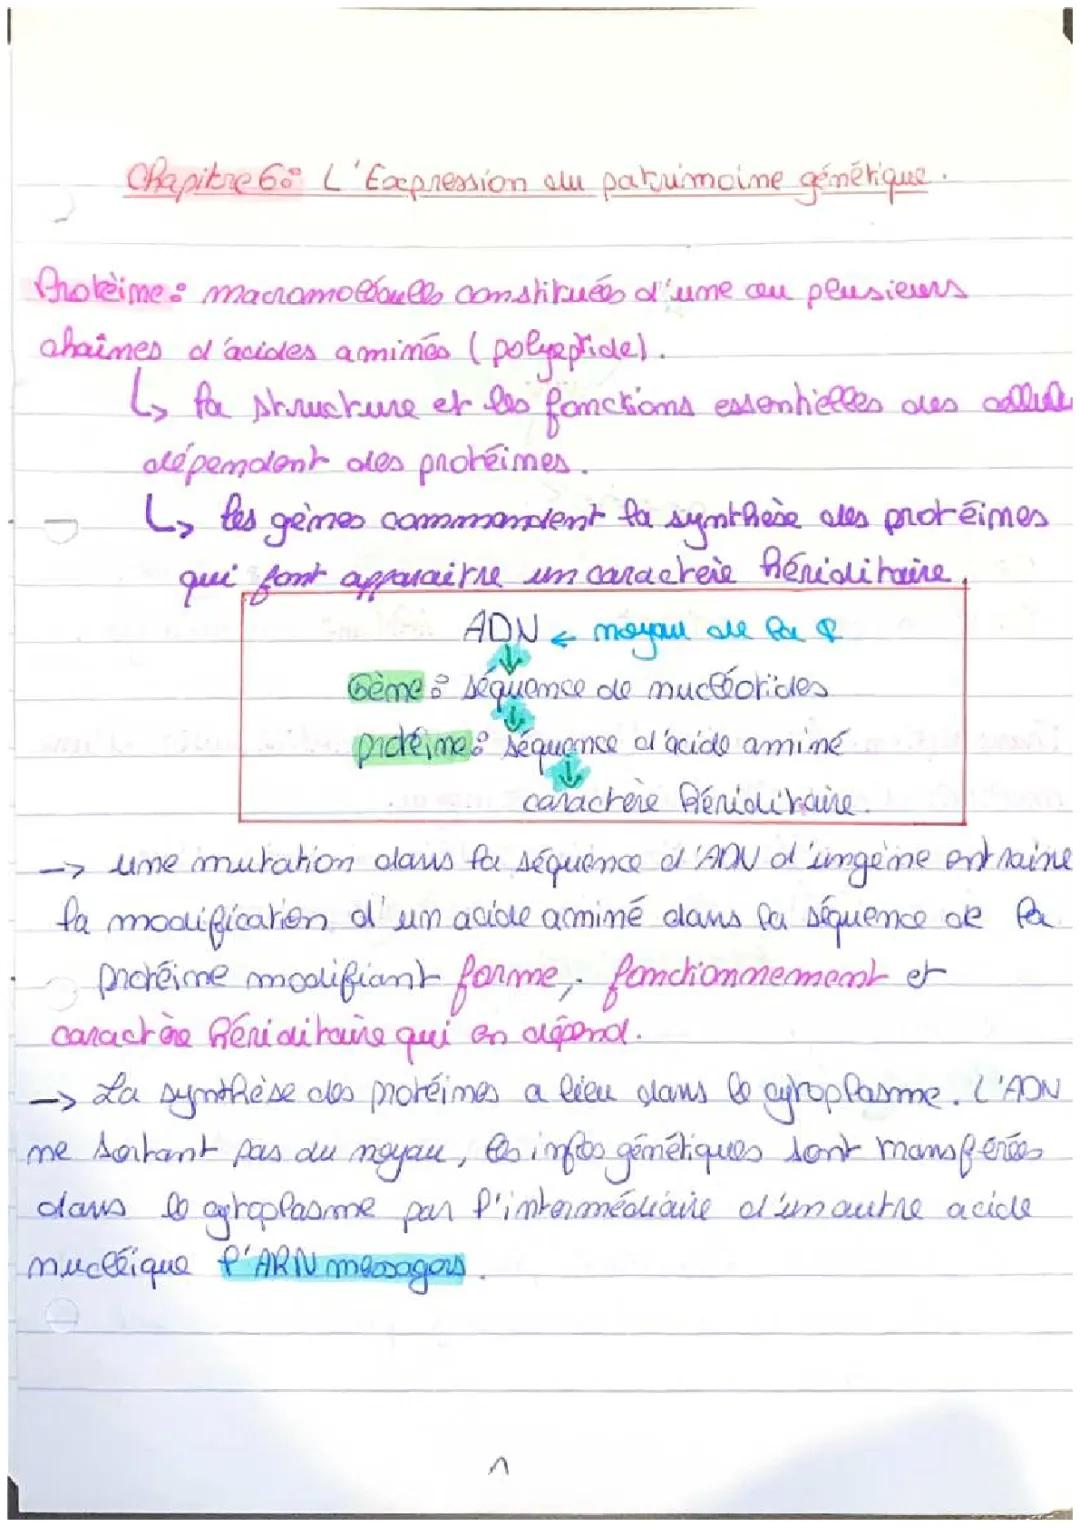 Chapitre 6: L'Expression du patrimoine génétique.
Protèine: macromolécules constituées d'une ou plusieurs
chaînes d'acides aminés (polypeptide).
↳ la structure et les fonctions essentielles des cellule
dépendent des protéines.
↳ les gènes commandent la synthèse des protéines
qui font apparaitre un caractère héréditaire.
ADN ← noyau de la
Gène: séquence de nucléotides
protéine: séquence d'acide aminé
caractère héréditaire.
→ une mutation dans la séquence d'ADN d'un gène entraine
la modification d'un acide aminé dans la séquence de la
protéine modifiant forme, fonctionnement et
caractère héréditaire qui en dépend.
→ La synthèse des protéines a lieu dans le cytoplasme. L'ADN
ne sortant pas du noyau, les infos génétiques sont transférées
dans le cytoplasme par l'intermédiaire d'un autre acide
nucléique l'ARN messagers.
1